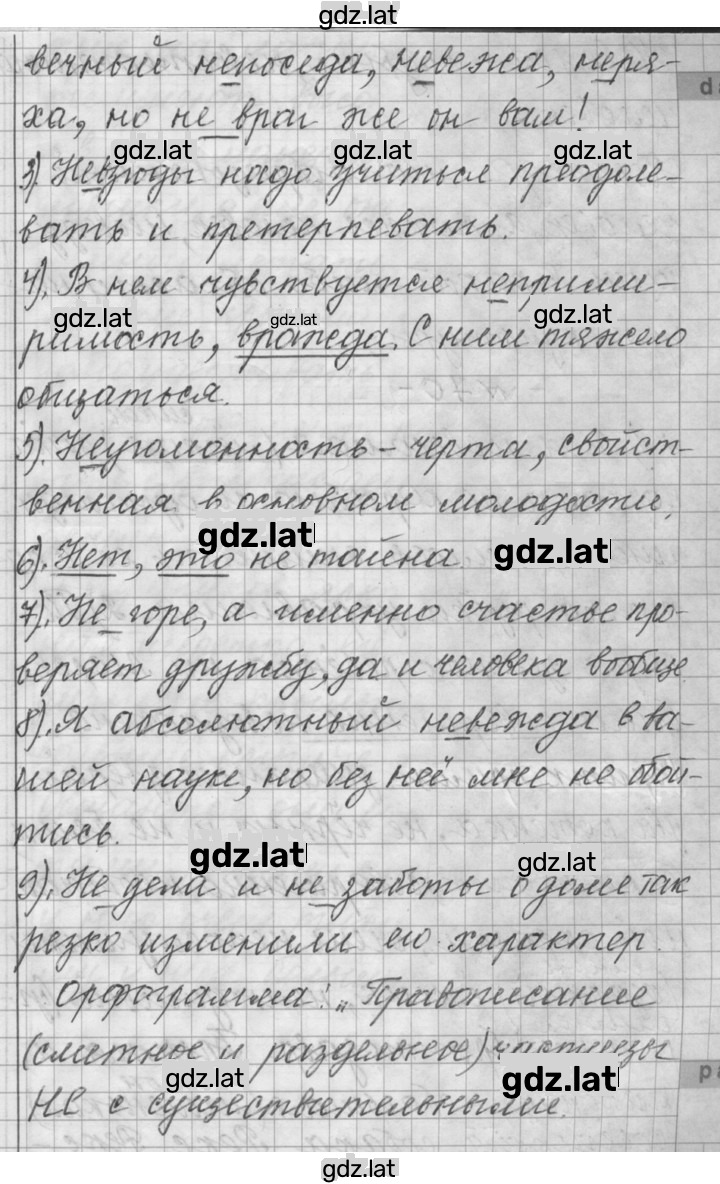 gdz.lat
вечный непоседа, невежа, неря-
ха, но не враг же он вам!
gdz.lat gdz.lat gdz.lat
3). Невзгоды надо учиться преодоле-
вать и претерпевать.
4). В нем чувствуется неприми-
gdz.lat gdz.lat gdz.lat
римость, вражда. С ним тяжело
общаться.
5). Неугомонность – черта, свойст-
венная в основном молодости.
gdz.lat gdz.lat
6). Нет, это не тайна
7). Не горе, а именно счастье про-
веряет дружбу, да и человека вообще
8). Я абсолютный невежда в ва-
шей науке, но без неё мне не обой-
тись.
gdz.lat gdz.lat
9). Не дела и не заботы о доме так
резко изменили его характер.
Орфограмма: „Правописание
(слитное и раздельное) частицы
gdz.lat gdz.lat
НЕ с существительными.
gdz.lat